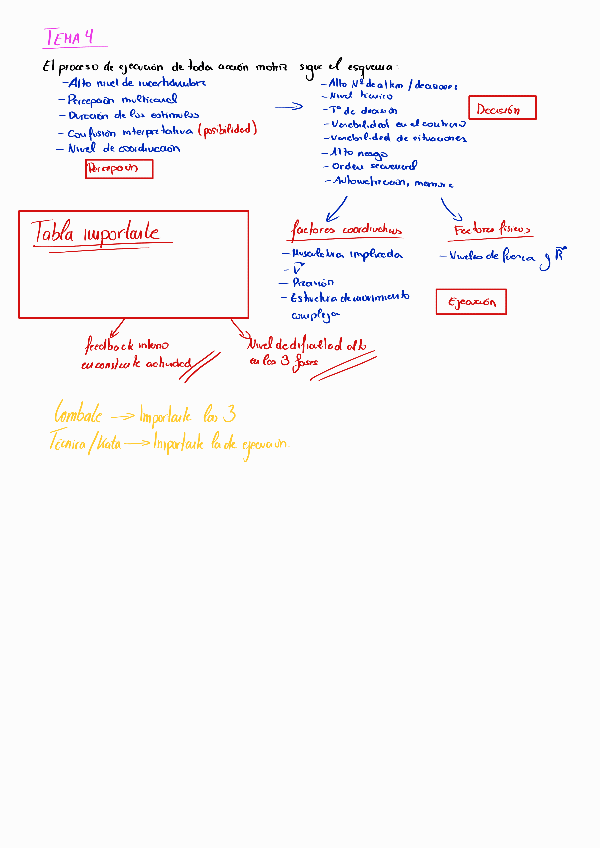 TEMA 4
El proceso de ejecución de toda acción motriz sigue el esquema:
- Alto nivel de incertidumbre
- Percepción multicanal
- Duración de los estímulos
- Confusión interpretativa (posibilidad)
- Nivel de coordinación
Percepción
- Alto Nº de altern / decisiones
- Nivel técnico
- Tº de decisión
- Variabilidad en el contrario
- Variabilidad de situaciones
- Alto riesgo
- Orden secuencial
- Automatización, memoria
Decisión
Tabla importante
factores coordinativos
- Musculatura implicada
- V
- Precisión
- Estructura de movimiento
compleja
Factores físicos
- Niveles de fuerza y R
Ejecución
feedback interno
en constante actividad
Nivel de dificultad alto
en las 3 fases
Combate → Importante las 3
Técnica/Kata → Importante la de ejecución.